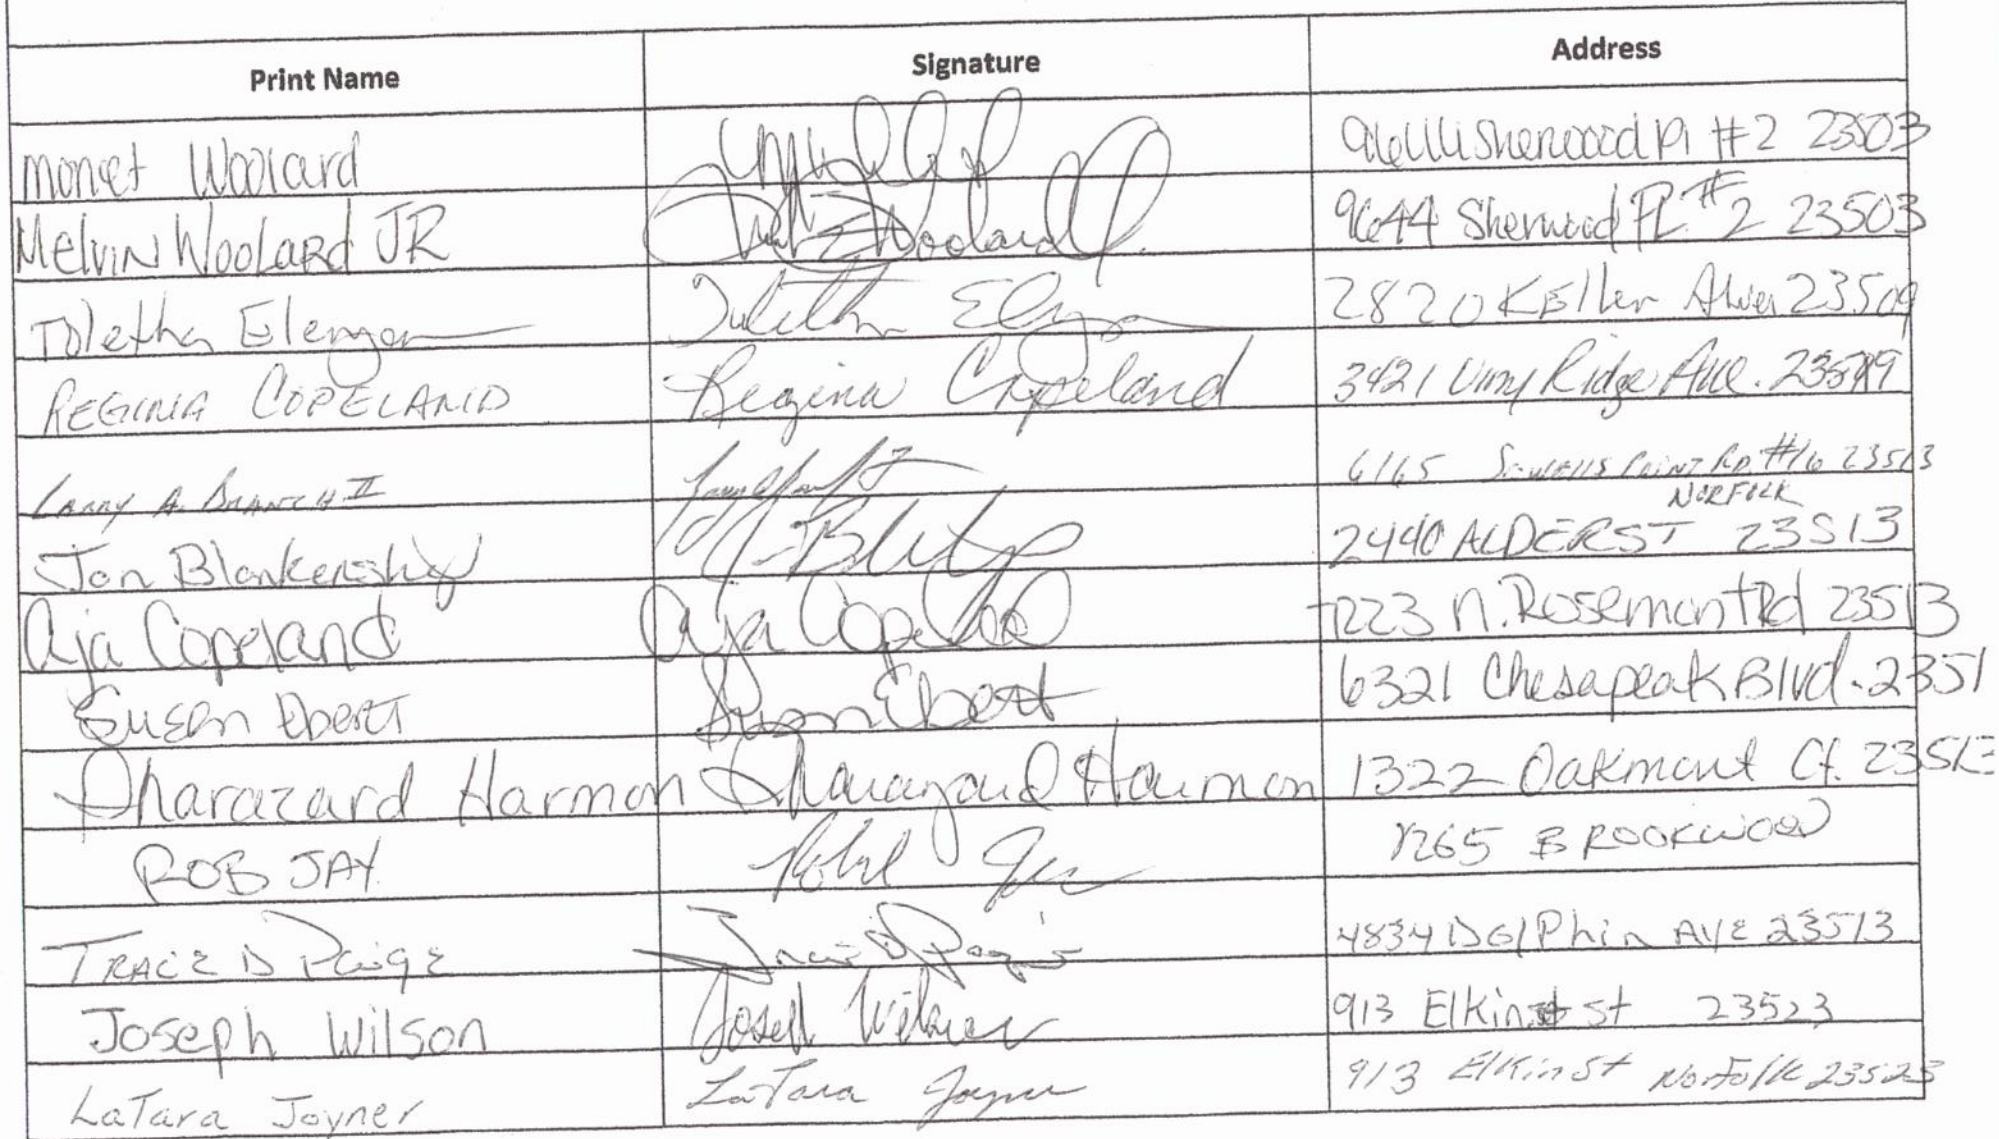 Print Name Signature Address
Monet Woolard 9644 Sherwood Pl #2 23503
Melvin Woolard JR Woolard 9644 Sherwood PL #2 23503
Toletha 2820 Keller 23509
REGINIA COPELAND Regina Copeland 3421 Vimy Ridge Ave.
LARRY A. BRANCH II 6165 Sewells Point Rd. #16 23513
NORFOLK
Jon Blankenship 2440 ALDER ST 23513
Aja Copeland Aja Copeland 7223 N. Rosemont Rd 23513
Susan Ebert Susan Ebert 6321 Chesapeak Blvd. 2351
Sharazard Harmon Sharazard Harmon 1322 Oakmont Ct. 23513
ROB JAY BROOKWOOD
TRACE D Paige 4834 DelPhin AVE 23513
Joseph Wilson Joseph Wilson 913 Elkin St 23523
LaTara Joyner LaTara Joyner 913 Elkin St Norfolk 23523